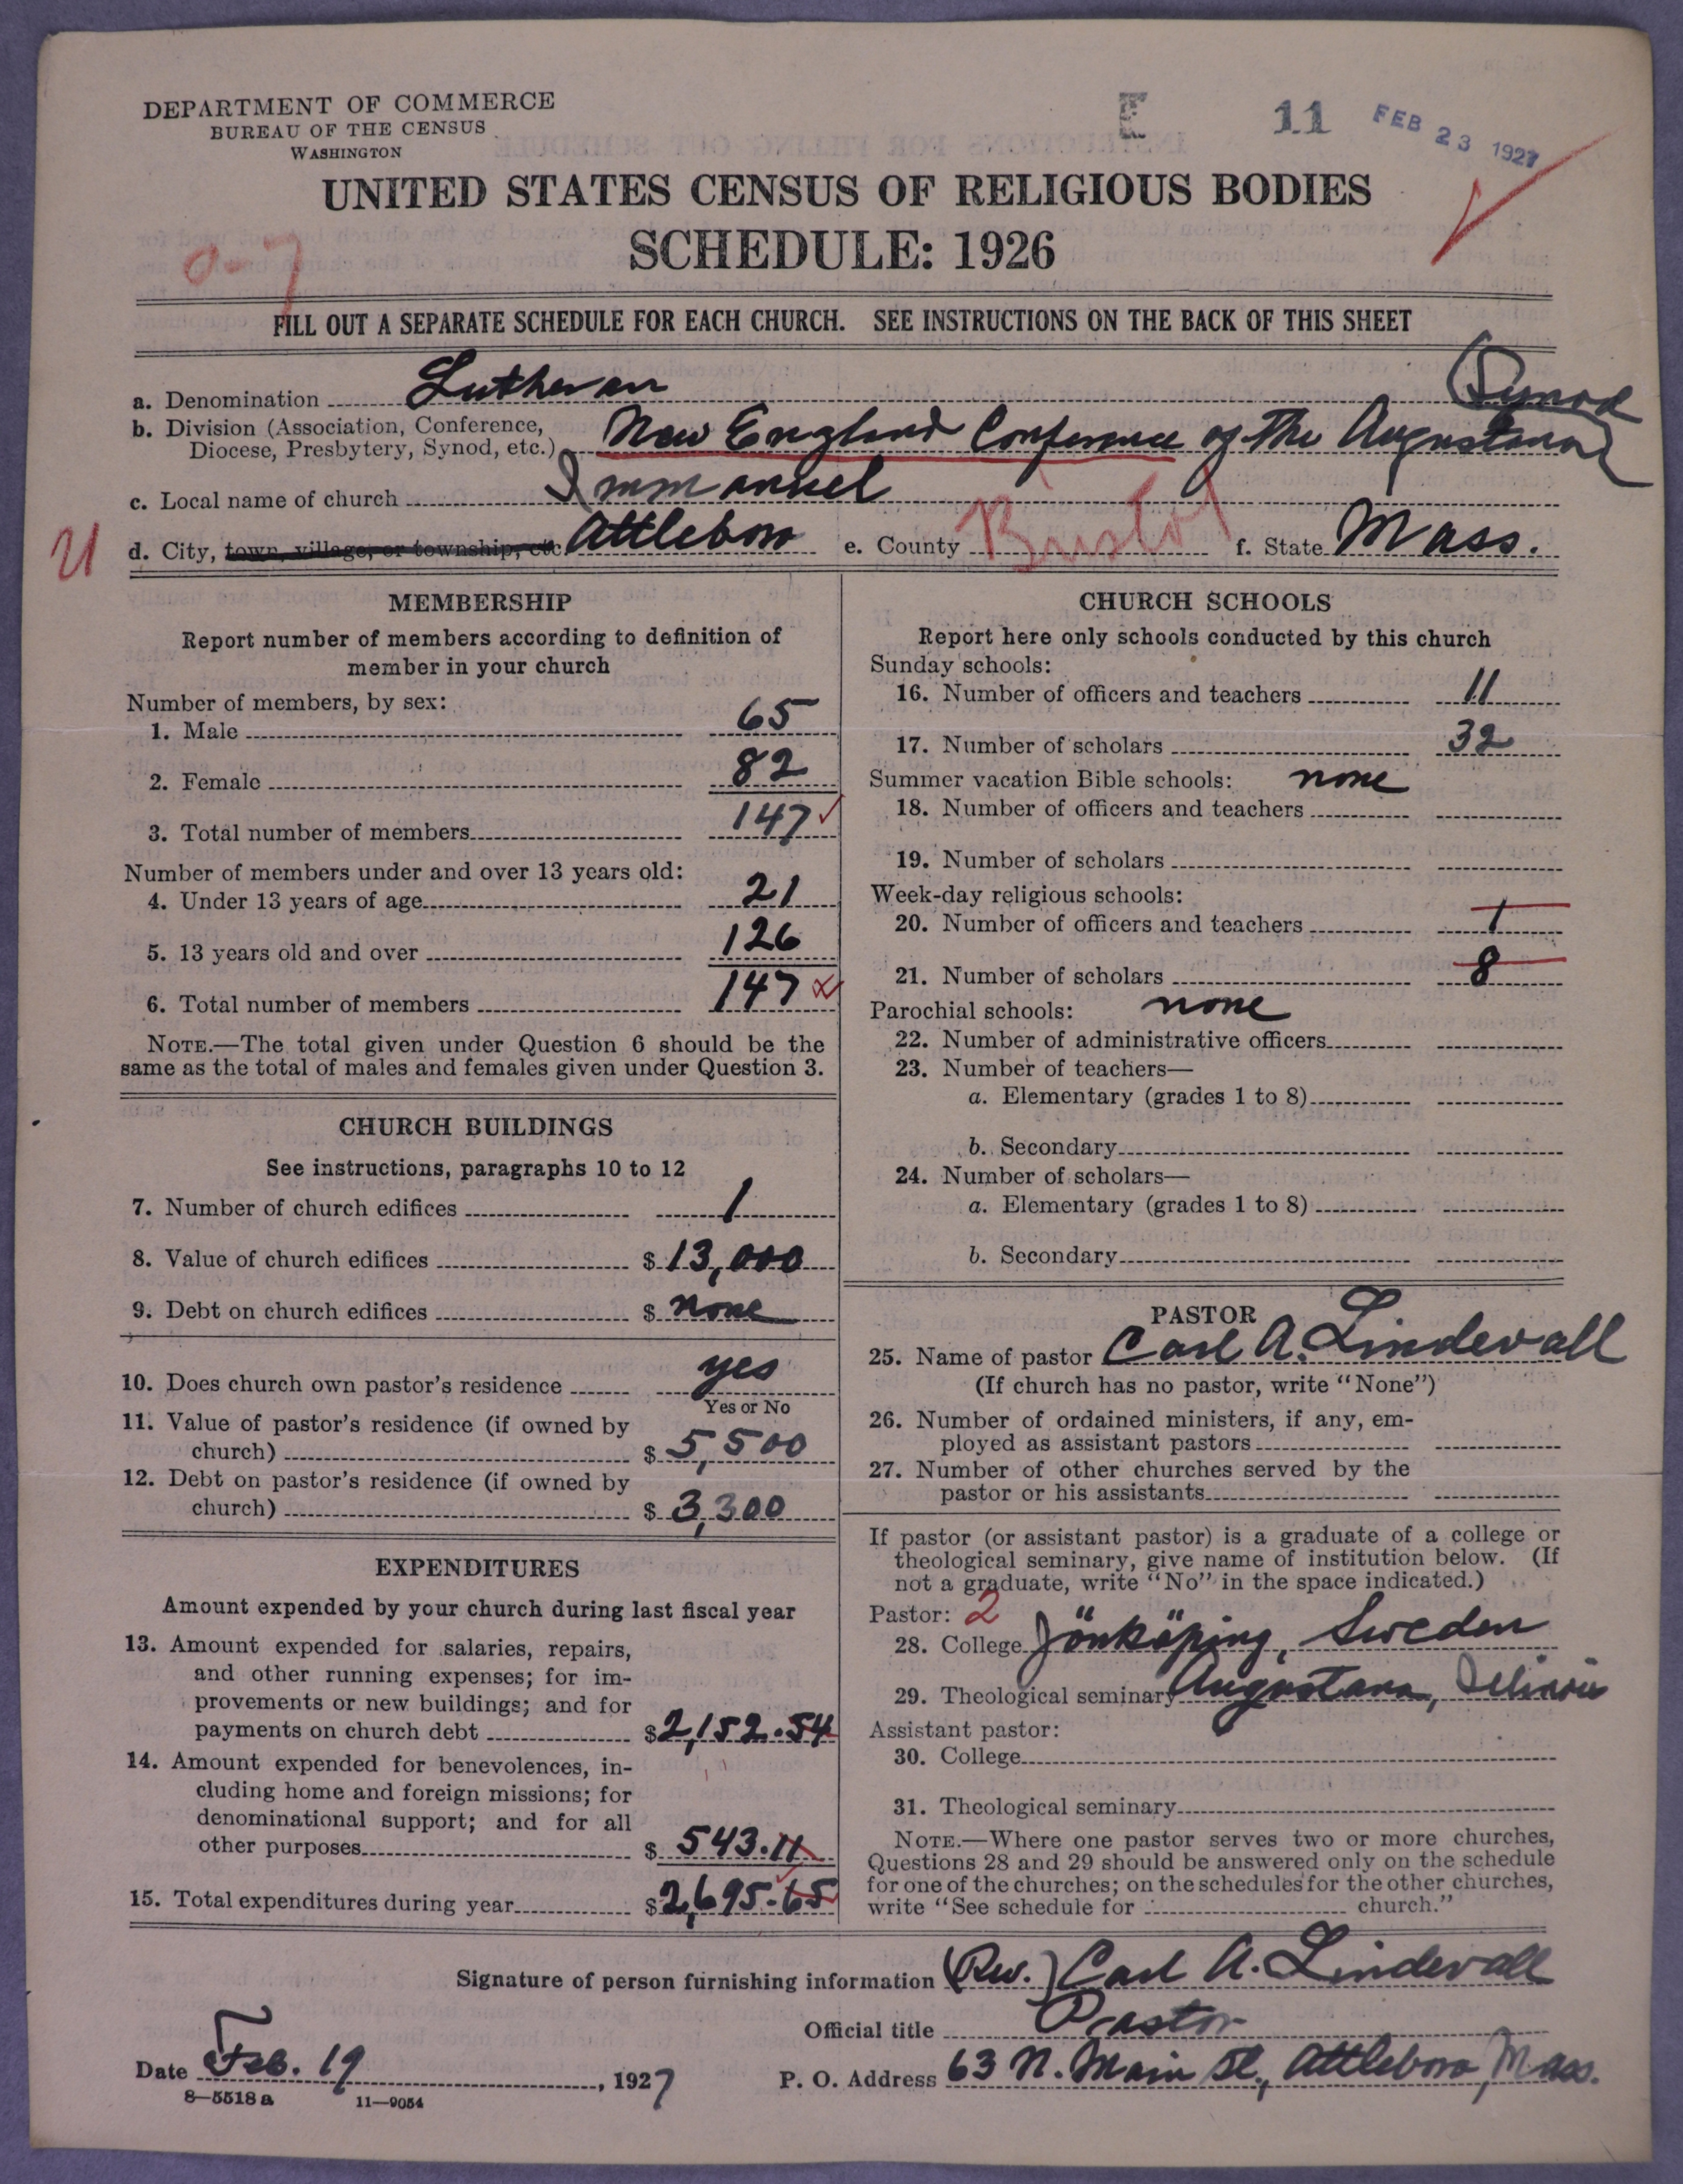 DEPARTMENT OF COMMERCE
BUREAU OF THE CENSUS
WASHINGTON
E 11 FEB 23 1927
UNITED STATES CENSUS OF RELIGIOUS BODIES
SCHEDULE: 1926
0-7
FILL OUT A SEPARATE SCHEDULE FOR EACH CHURCH. SEE INSTRUCTIONS ON THE BACK OF THIS SHEET
a. Denomination Lutheran
b. Division (Association, Conference, Diocese, Presbytery, Synod, etc.) New England Conference of the Augustana Synod
c. Local name of church Immanuel
U d. City, town, village, or township, etc Attleboro e. County Bristol f. State Mass.
MEMBERSHIP
Report number of members according to definition of
member in your church
Number of members, by sex:
1. Male 65
2. Female 82
3. Total number of members 147
Number of members under and over 13 years old:
4. Under 13 years of age 21
5. 13 years old and over 126
6. Total number of members 147
NOTE.—The total given under Question 6 should be the
same as the total of males and females given under Question 3.
CHURCH BUILDINGS
See instructions, paragraphs 10 to 12
7. Number of church edifices 1
8. Value of church edifices $ 13,000
9. Debt on church edifices $ none
10. Does church own pastor's residence yes
Yes or No
11. Value of pastor's residence (if owned by
church) $ 5,500
12. Debt on pastor's residence (if owned by
church) $ 3,300
EXPENDITURES
Amount expended by your church during last fiscal year
13. Amount expended for salaries, repairs,
and other running expenses; for im-
provements or new buildings; and for
payments on church debt $ 2,152.54
14. Amount expended for benevolences, in-
cluding home and foreign missions; for
denominational support; and for all
other purposes $ 543.11
15. Total expenditures during year $ 2,695.65
CHURCH SCHOOLS
Report here only schools conducted by this church
Sunday schools:
16. Number of officers and teachers 11
17. Number of scholars 32
Summer vacation Bible schools: none
18. Number of officers and teachers
19. Number of scholars
Week-day religious schools:
20. Number of officers and teachers 1
21. Number of scholars 8
Parochial schools: none
22. Number of administrative officers
23. Number of teachers—
a. Elementary (grades 1 to 8)
b. Secondary
24. Number of scholars—
a. Elementary (grades 1 to 8)
b. Secondary
PASTOR
25. Name of pastor Carl A. Lindevall
(If church has no pastor, write "None")
26. Number of ordained ministers, if any, em-
ployed as assistant pastors
27. Number of other churches served by the
pastor or his assistants
If pastor (or assistant pastor) is a graduate of a college or
theological seminary, give name of institution below. (If
not a graduate, write "No" in the space indicated.)
Pastor: 2
28. College Jönköping, Sweden
29. Theological seminary Augustana, Illinois
Assistant pastor:
30. College
31. Theological seminary
NOTE.—Where one pastor serves two or more churches,
Questions 28 and 29 should be answered only on the schedule
for one of the churches; on the schedules for the other churches,
write "See schedule for church."
Signature of person furnishing information (Rev.) Carl A. Lindevall
Official title Pastor
Date Feb. 19, 1927 P. O. Address 63 N. Main St., Attleboro, Mass.
8—5518 a 11—9054